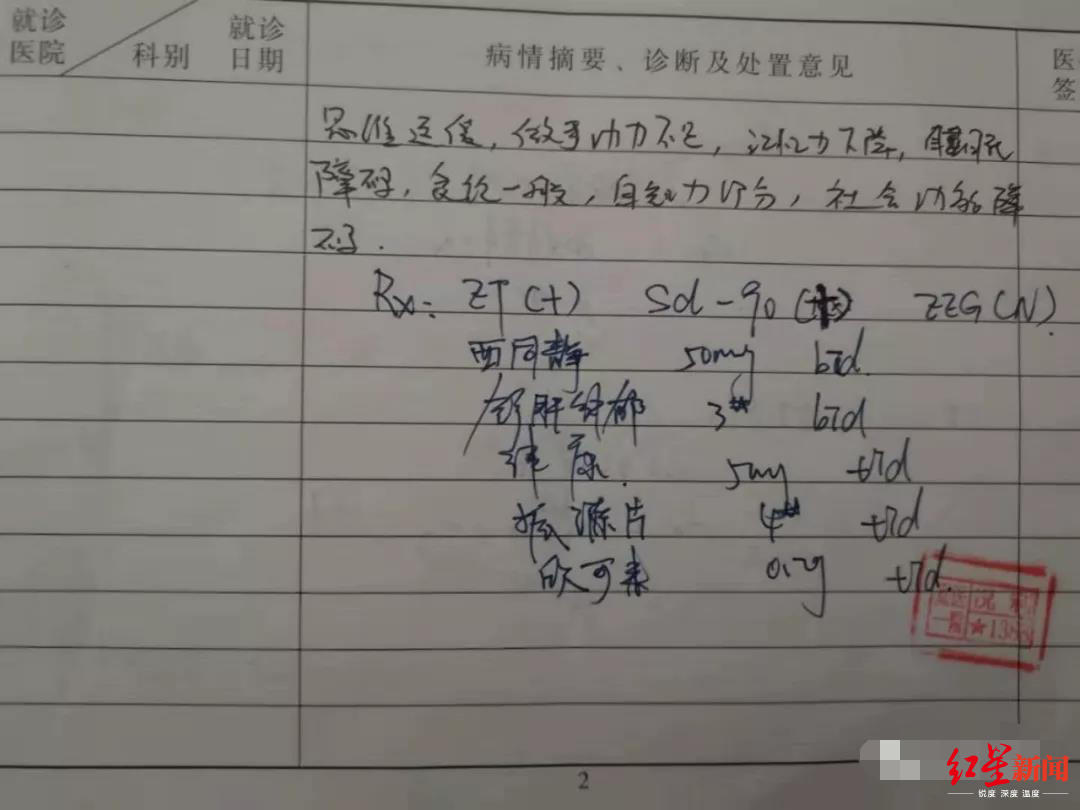 就诊医院 科别 就诊日期 病情摘要、诊断及处置意见 医 签
思维迟缓，做事动力不足，记忆力下降，睡眠
障碍，食纶一般，自知力部分，社会功能障
碍.
Rx: ZT(+) Sd-90 ZZG(N).
西同静 50mg bid.
舒肝解郁 3# bid
律康. 5mg tid
片 4# tid
欣可来 0.2g tid.
一 ★138
2
红星新闻
锐度 深度 温度